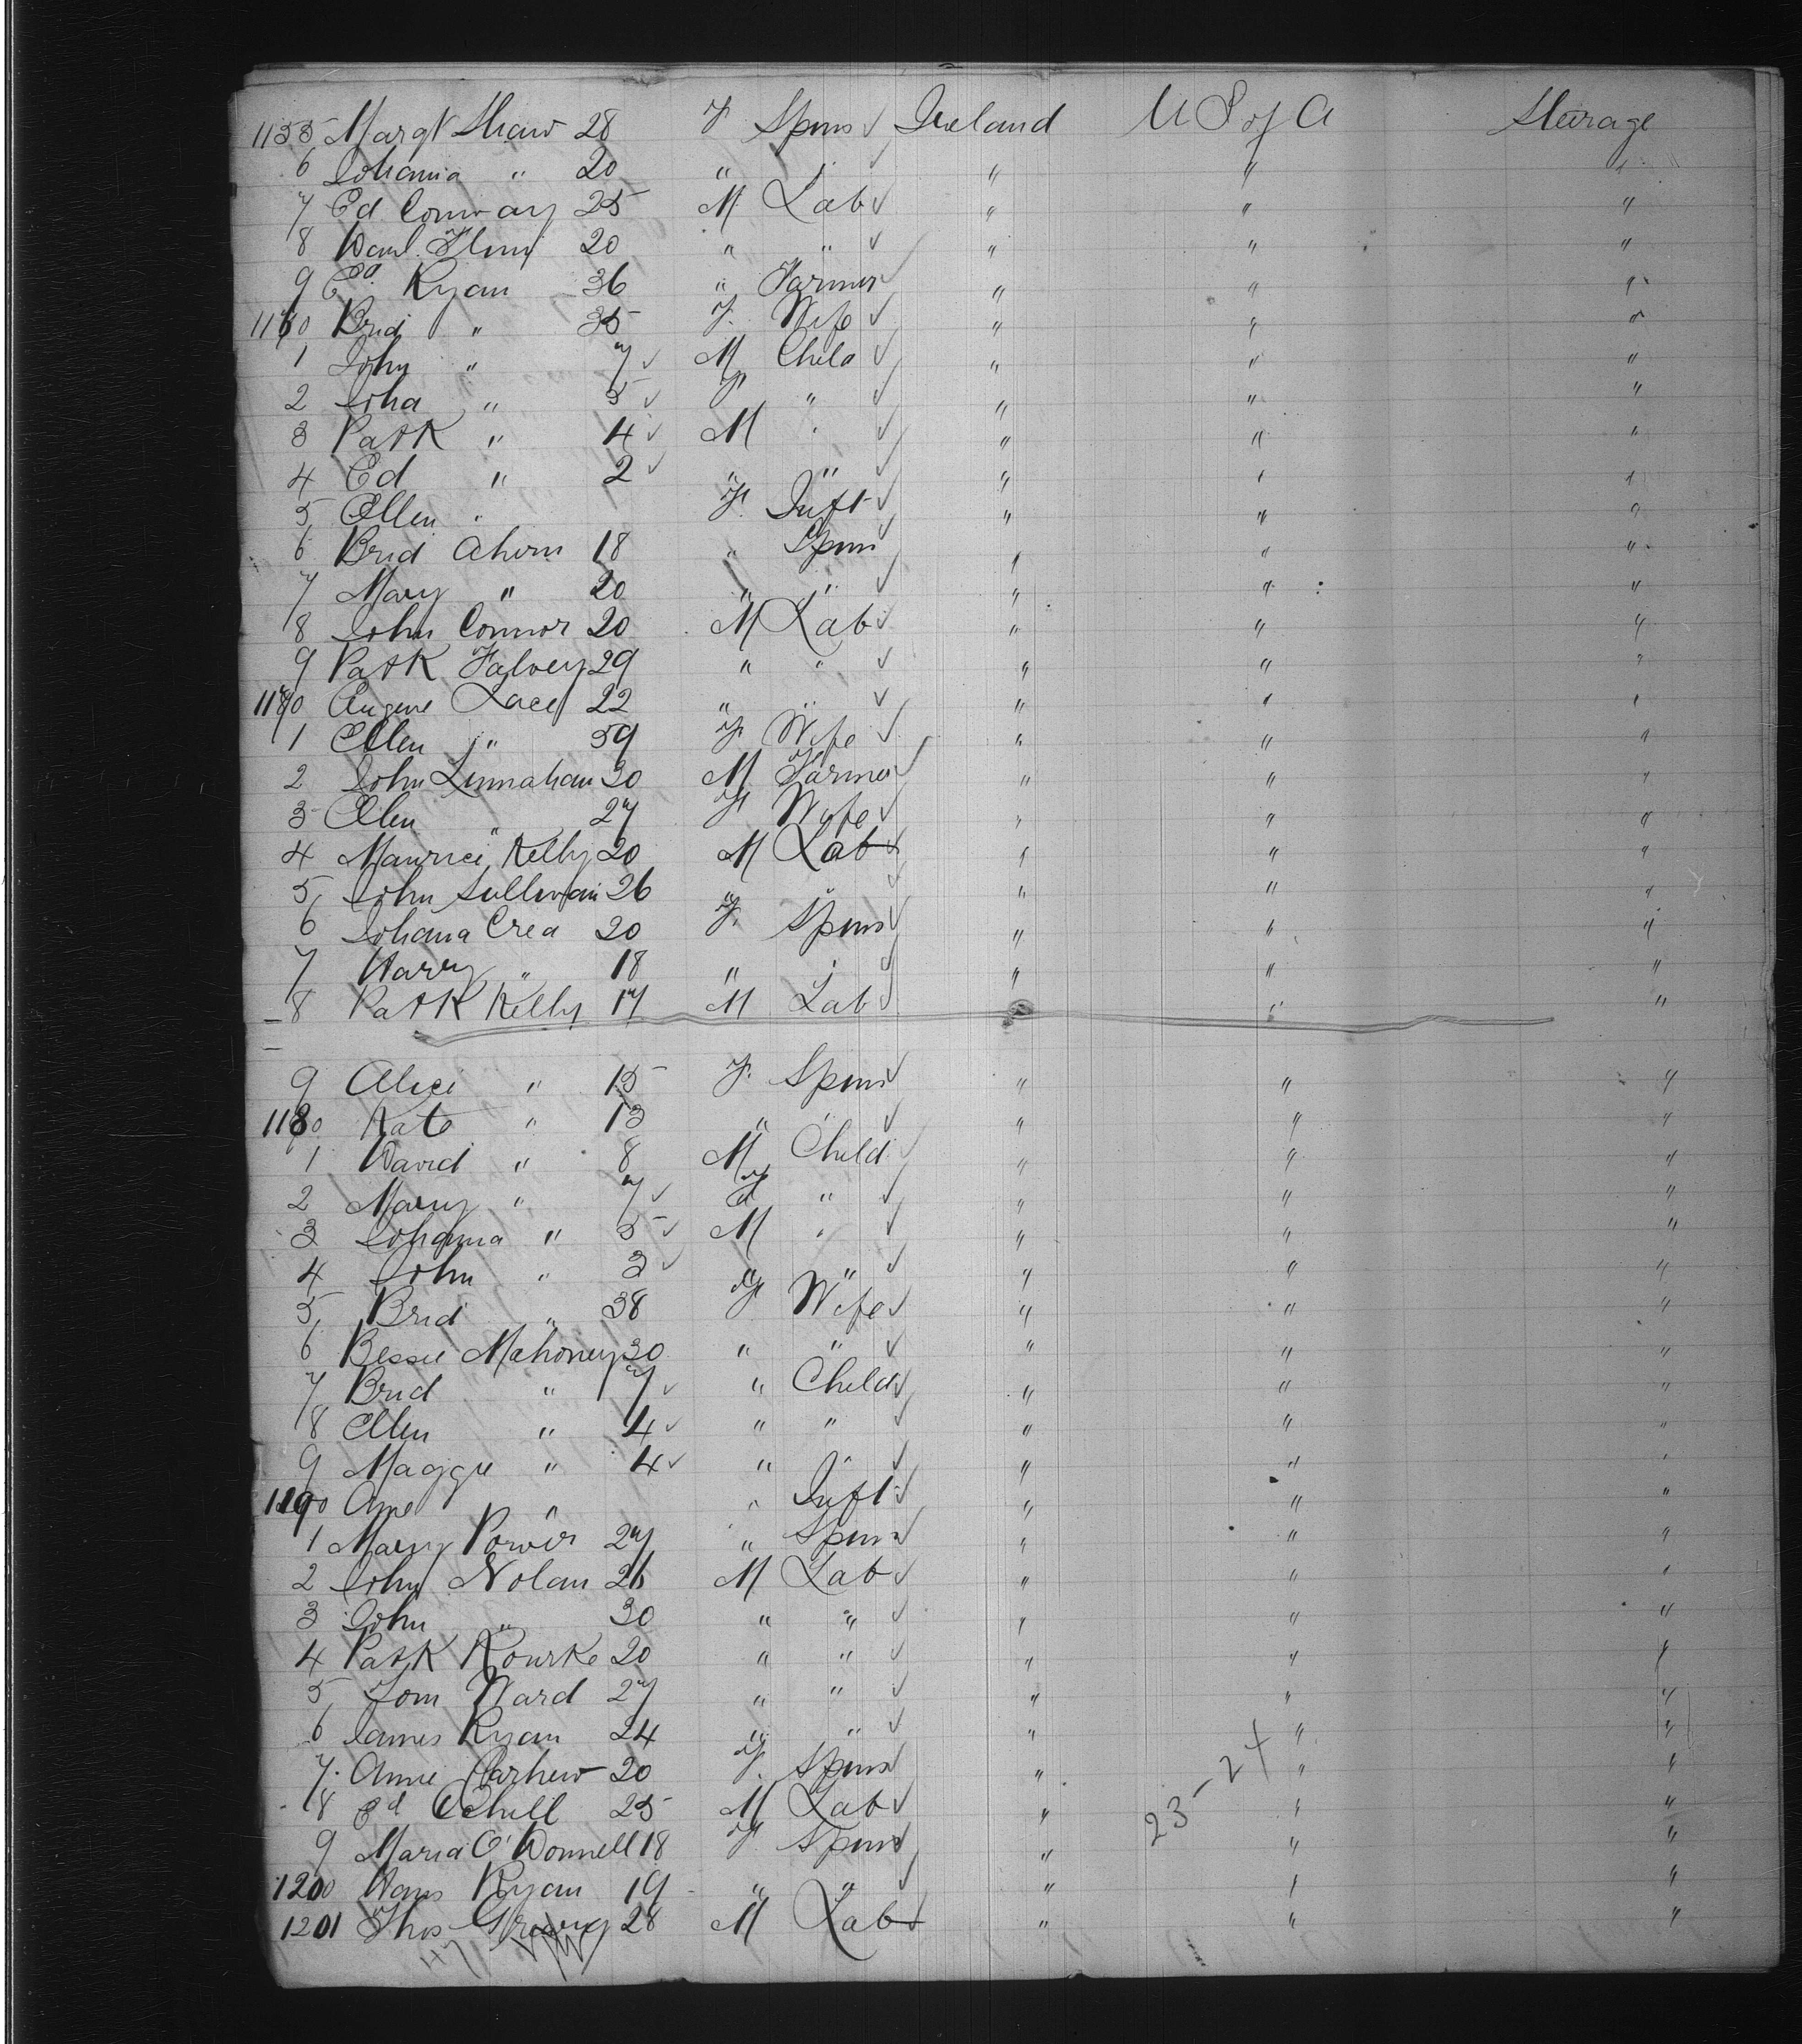 1155 Margt Shaw 28 F Spins ✓ Ireland U S of A Steerage
6 Johanna " 20 " " ✓ " " "
7 Ed Conway 25 M Lab ✓ " " "
8 Danl 20 " " ✓ " " "
9 Ed Ryan 36 " Farmer ✓ " " "
1160 Brid " 35 F. Wife ✓ " " "
1 John " 7 ✓ M Child ✓ " " "
2 Joha " 5 ✓ F " ✓ " " "
3 Patk " 4 ✓ M " ✓ " " "
4 Ed " 2 ✓ " " ✓ " " "
5 Ellen " F Inft ✓ " " "
6 Brid Ahern 18 " Spins ✓ " " "
7 Mary " 20 " " ✓ " " "
8 John Connor 20 M Lab ✓ " " "
9 Patk Falvey 29 " " ✓ " " "
1170 Eugene Lacey 22 " " ✓ " " "
1 Ellen " 59 F Wife ✓ " " "
2 John Linnahan 30 M Farmer ✓ " " "
3 Ellen " 27 F Wife ✓ " " "
4 Maurice Kelly 20 M Lab ✓ " " "
5 John Sullivan 26 " " ✓ " " "
6 Johana Crea 20 F. Spins ✓ " " "
7 " 18 " " ✓ " " "
8 Patk Kelly 17 M Lab ✓ " " "
9 Alice " 15 F. Spins ✓ " " "
1180 Kate " 13 " " ✓ " " "
1 David " 8 M Child ✓ " " "
2 Mary " 7 ✓ F " ✓ " " "
3 Johanna " 5 ✓ M " ✓ " " "
4 John " 3 ✓ " " ✓ " " "
5 Brid " 38 F Wife ✓ " " "
6 Bessie Mahoney 30 " " ✓ " " "
7 Brid " 7 ✓ " Child ✓ " " "
8 Ellen " 4 ✓ " " ✓ " " "
9 Maggie " 4 ✓ " " ✓ " " "
1190 Anne " " Inft ✓ " " "
1 Mary Power 27 " Spins ✓ " " "
2 John Nolan 26 M Lab ✓ " " "
3 John " 30 " " ✓ " " "
4 Patk Rourke 20 " " ✓ " " "
5 Tom Ward 27 " " ✓ " " "
6 James Ryan 24 " " ✓ " " "
7 Annie 20 F. Spins ✓ " " "
8 Ed 25 M Lab ✓ " " "
9 Maria O'Donnell 18 F Spins ✓ " " "
1200 Ryan 19 " " ✓ " " "
1201 Thos 28 M Lab ✓ " " "
23-24
47